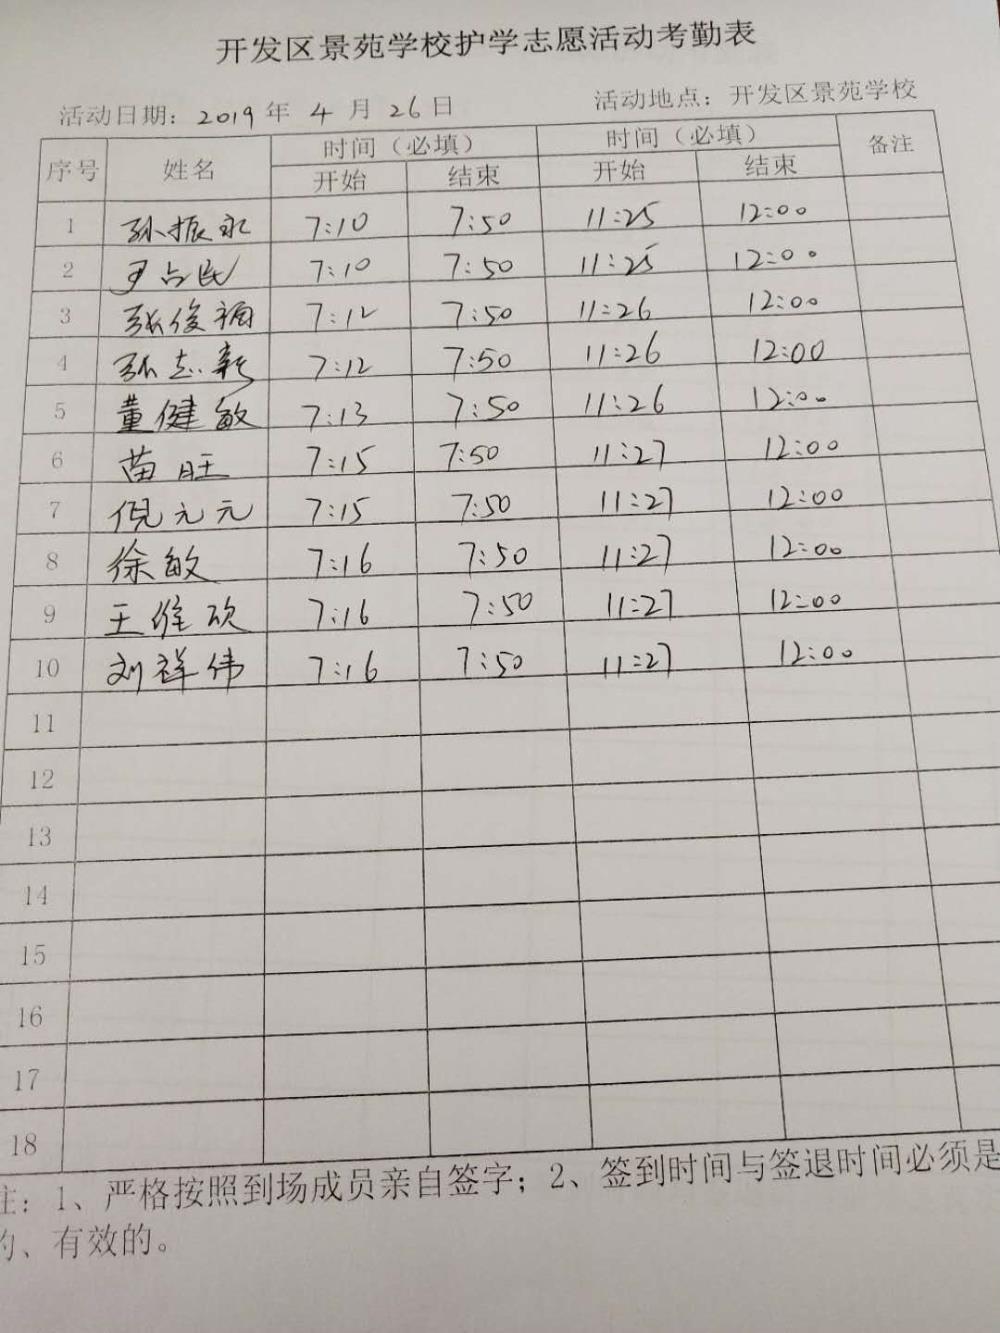 开发区景苑学校护学志愿活动考勤表
活动日期: 2019 年 4 月 26 日 活动地点: 开发区景苑学校
序号 姓名 时间（必填） 时间（必填） 备注
开始 结束 开始 结束
1 孙振永 7:10 7:50 11:25 12:00
2 尹占民 7:10 7:50 11:25 12:00
3 张俊 7:12 7:50 11:26 12:00
4 孙志新 7:12 7:50 11:26 12:00
5 董健敏 7:13 7:50 11:26 12:00
6 苗旺 7:15 7:50 11:27 12:00
7 倪元元 7:15 7:50 11:27 12:00
8 徐敏 7:16 7:50 11:27 12:00
9 王维欣 7:16 7:50 11:27 12:00
10 刘祥伟 7:16 7:50 11:27 12:00
11
12
13
14
15
16
17
18
注: 1、严格按照到场成员亲自签字; 2、签到时间与签退时间必须是
的、有效的。